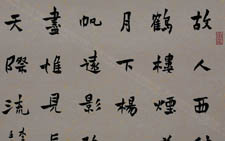 故人西
鶴樓煙
月下楊
帆遠影
盡惟見
天際流